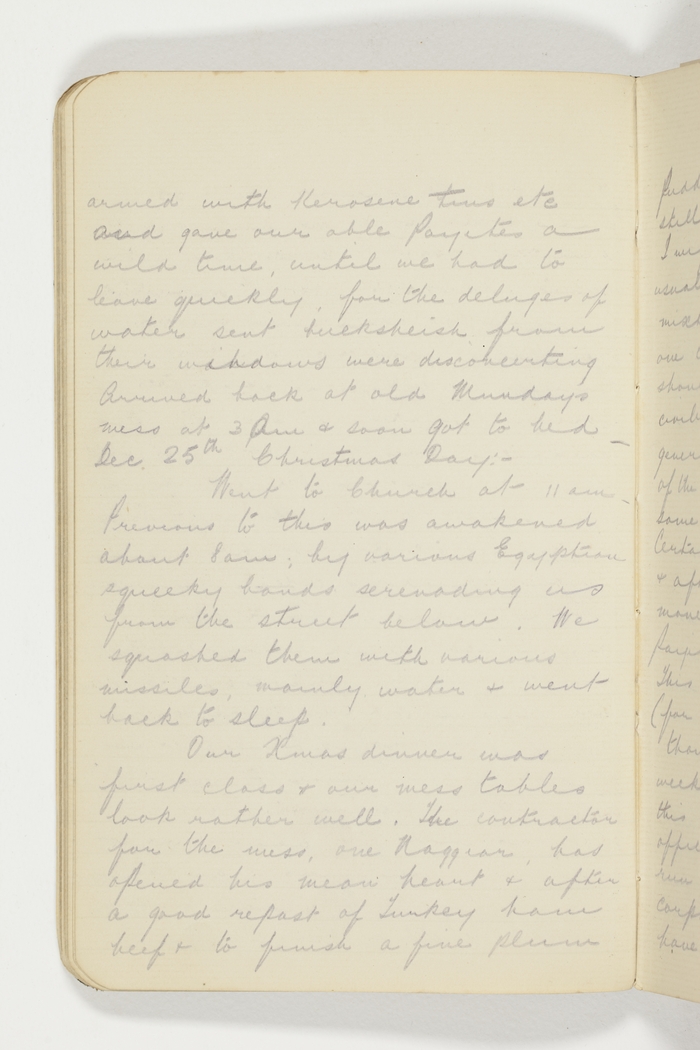 armed with Kerosene tins etc
and gave our able Paystes a
wild time, until we had to
leave quickly, for the deluges of
water sent bucksheish from
their windows were disconcerting
Arrived back at old Mundays
mess at 3 Am & soon got to bed
Dec. 25th Christmas Day:-
Went to Church at 11 am
Previous to this was awakened
about 8am; by various Egyptian
squeeky bands serenading us
from the street below. We
squashed them with various
missiles, mainly water & went
back to sleep.
Our Xmas dinner was
first class & our mess tables
look rather well. The contractor
for the mess, one Naggiar, has
opened his mean heart & after
a good repast of Turkey ham
beef & to finish a fine plum